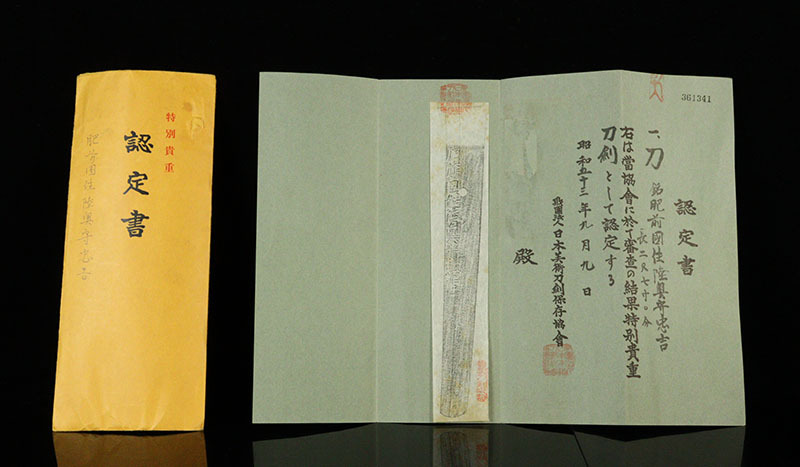 特別貴重
認定書
肥前国住陸奥守忠吉
361341
認定書
一、刀 銘肥前國住陸奥守忠吉
長二尺七寸〇分
右は當協會に於て審査の結果特別貴重
刀劍として認定する
昭和五十三年九月九日
財團法人日本美術刀劍保存協會
殿